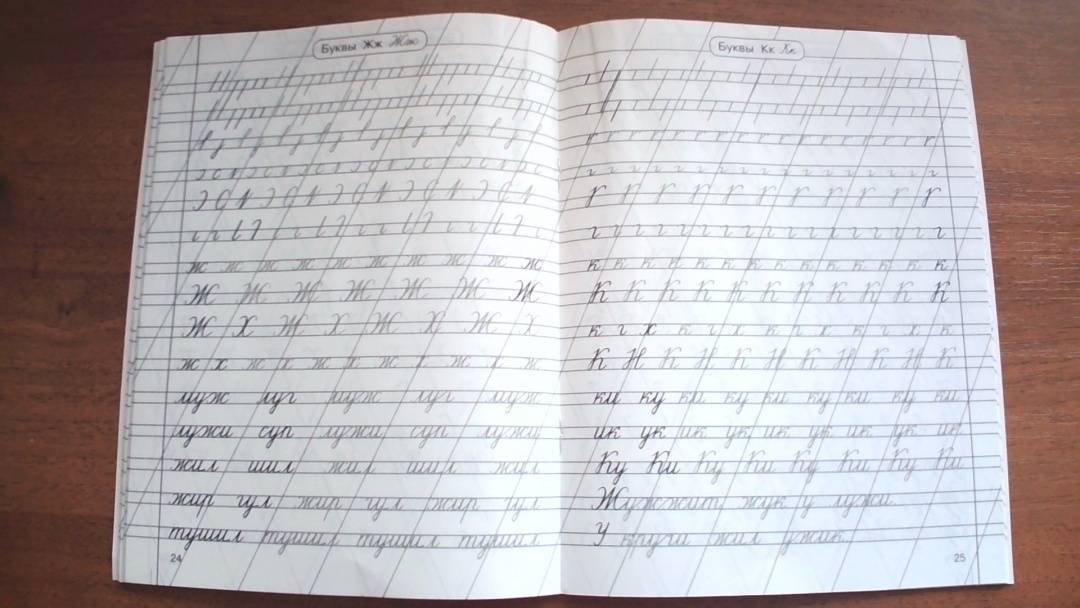 Буквы Жж Жж
ж ж ж ж ж ж ж ж ж ж
Ж Ж Ж Ж Ж Ж Ж
Ж Х Ж Х Ж Х Ж Х
ж х ж х ж х ж х ж х ж
муж луг муж луг муж
лужи суп лужи суп лужи
жил шил жил шил жил
жир гул жир гул жир гул
тушил тушил тушил тушил
24
Буквы Кк Кк
к к к к к к к к к к к к к к
К К К К К К К К К К К
к г х к г х к г х к г х к
К Н К Н К Н К Н К Н К
ки ку ки ку ки ку ки ку ки
ик ук ик ук ик ук ик ук ик
Ку Ки Ку Ки Ку Ки Ку Ки
Жужжит жук у лужи.
У кручи жил ужик.
25